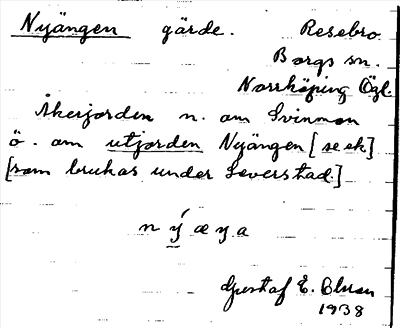 Nyängen gärde. Resebro
Borgs sn.
Norrköping Ögl.
Åkerjorden n. om Svinnon
ö. om utjorden Nyängen [se ek]
[som brukas under Leverstad]
n ý æ ŋ a
Gustaf E.
1938